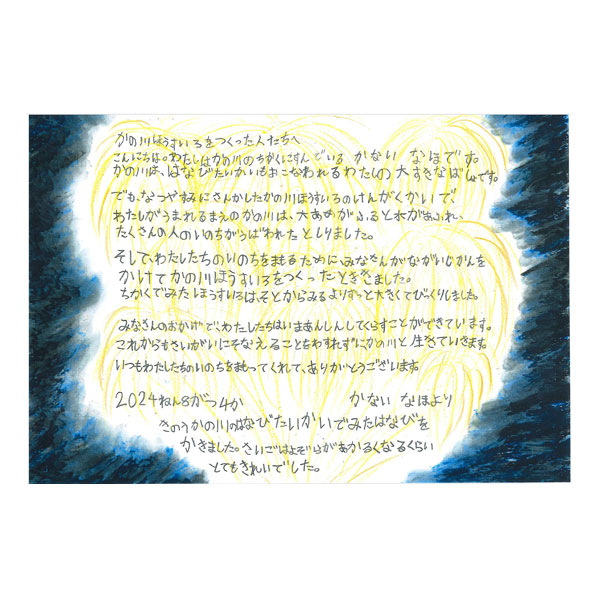 かの川ほうすいろをつくった人たちへ
こんにちは。わたしはかの川のちかくにすんでいる かない なほです。
かの川は、はなびたいかいもおこなわれるわたしの大すきなばしょです。
でも、なつやすみにさんかしたかの川ほうすいろのけんがくかいで、
わたしがうまれるまえのかの川は、大あめがふると水があふれ、
たくさんの人のいのちがうばわれたとしりました。
そして、わたしたちのいのちをまもるために、みなさんがながいじかんを
かけてかの川ほうすいろをつくったとききました。
ちかくでみたほうすいろは、そとからみるよりずっと大きくてびっくりしました。
みなさんのおかげで、わたしたちはいまあんしんしてくらすことができています。
これからもさいがいにそなえることをわすれずにかの川と生きていきます。
いつもわたしたちのいのちをまもってくれて、ありがとうございます。
2024ねん8がつ4か かない なほより
きのうかの川のはなびたいかいでみたはなびを
かきました。さいごはよぞらがあかるくなるくらい
とてもきれいでした。